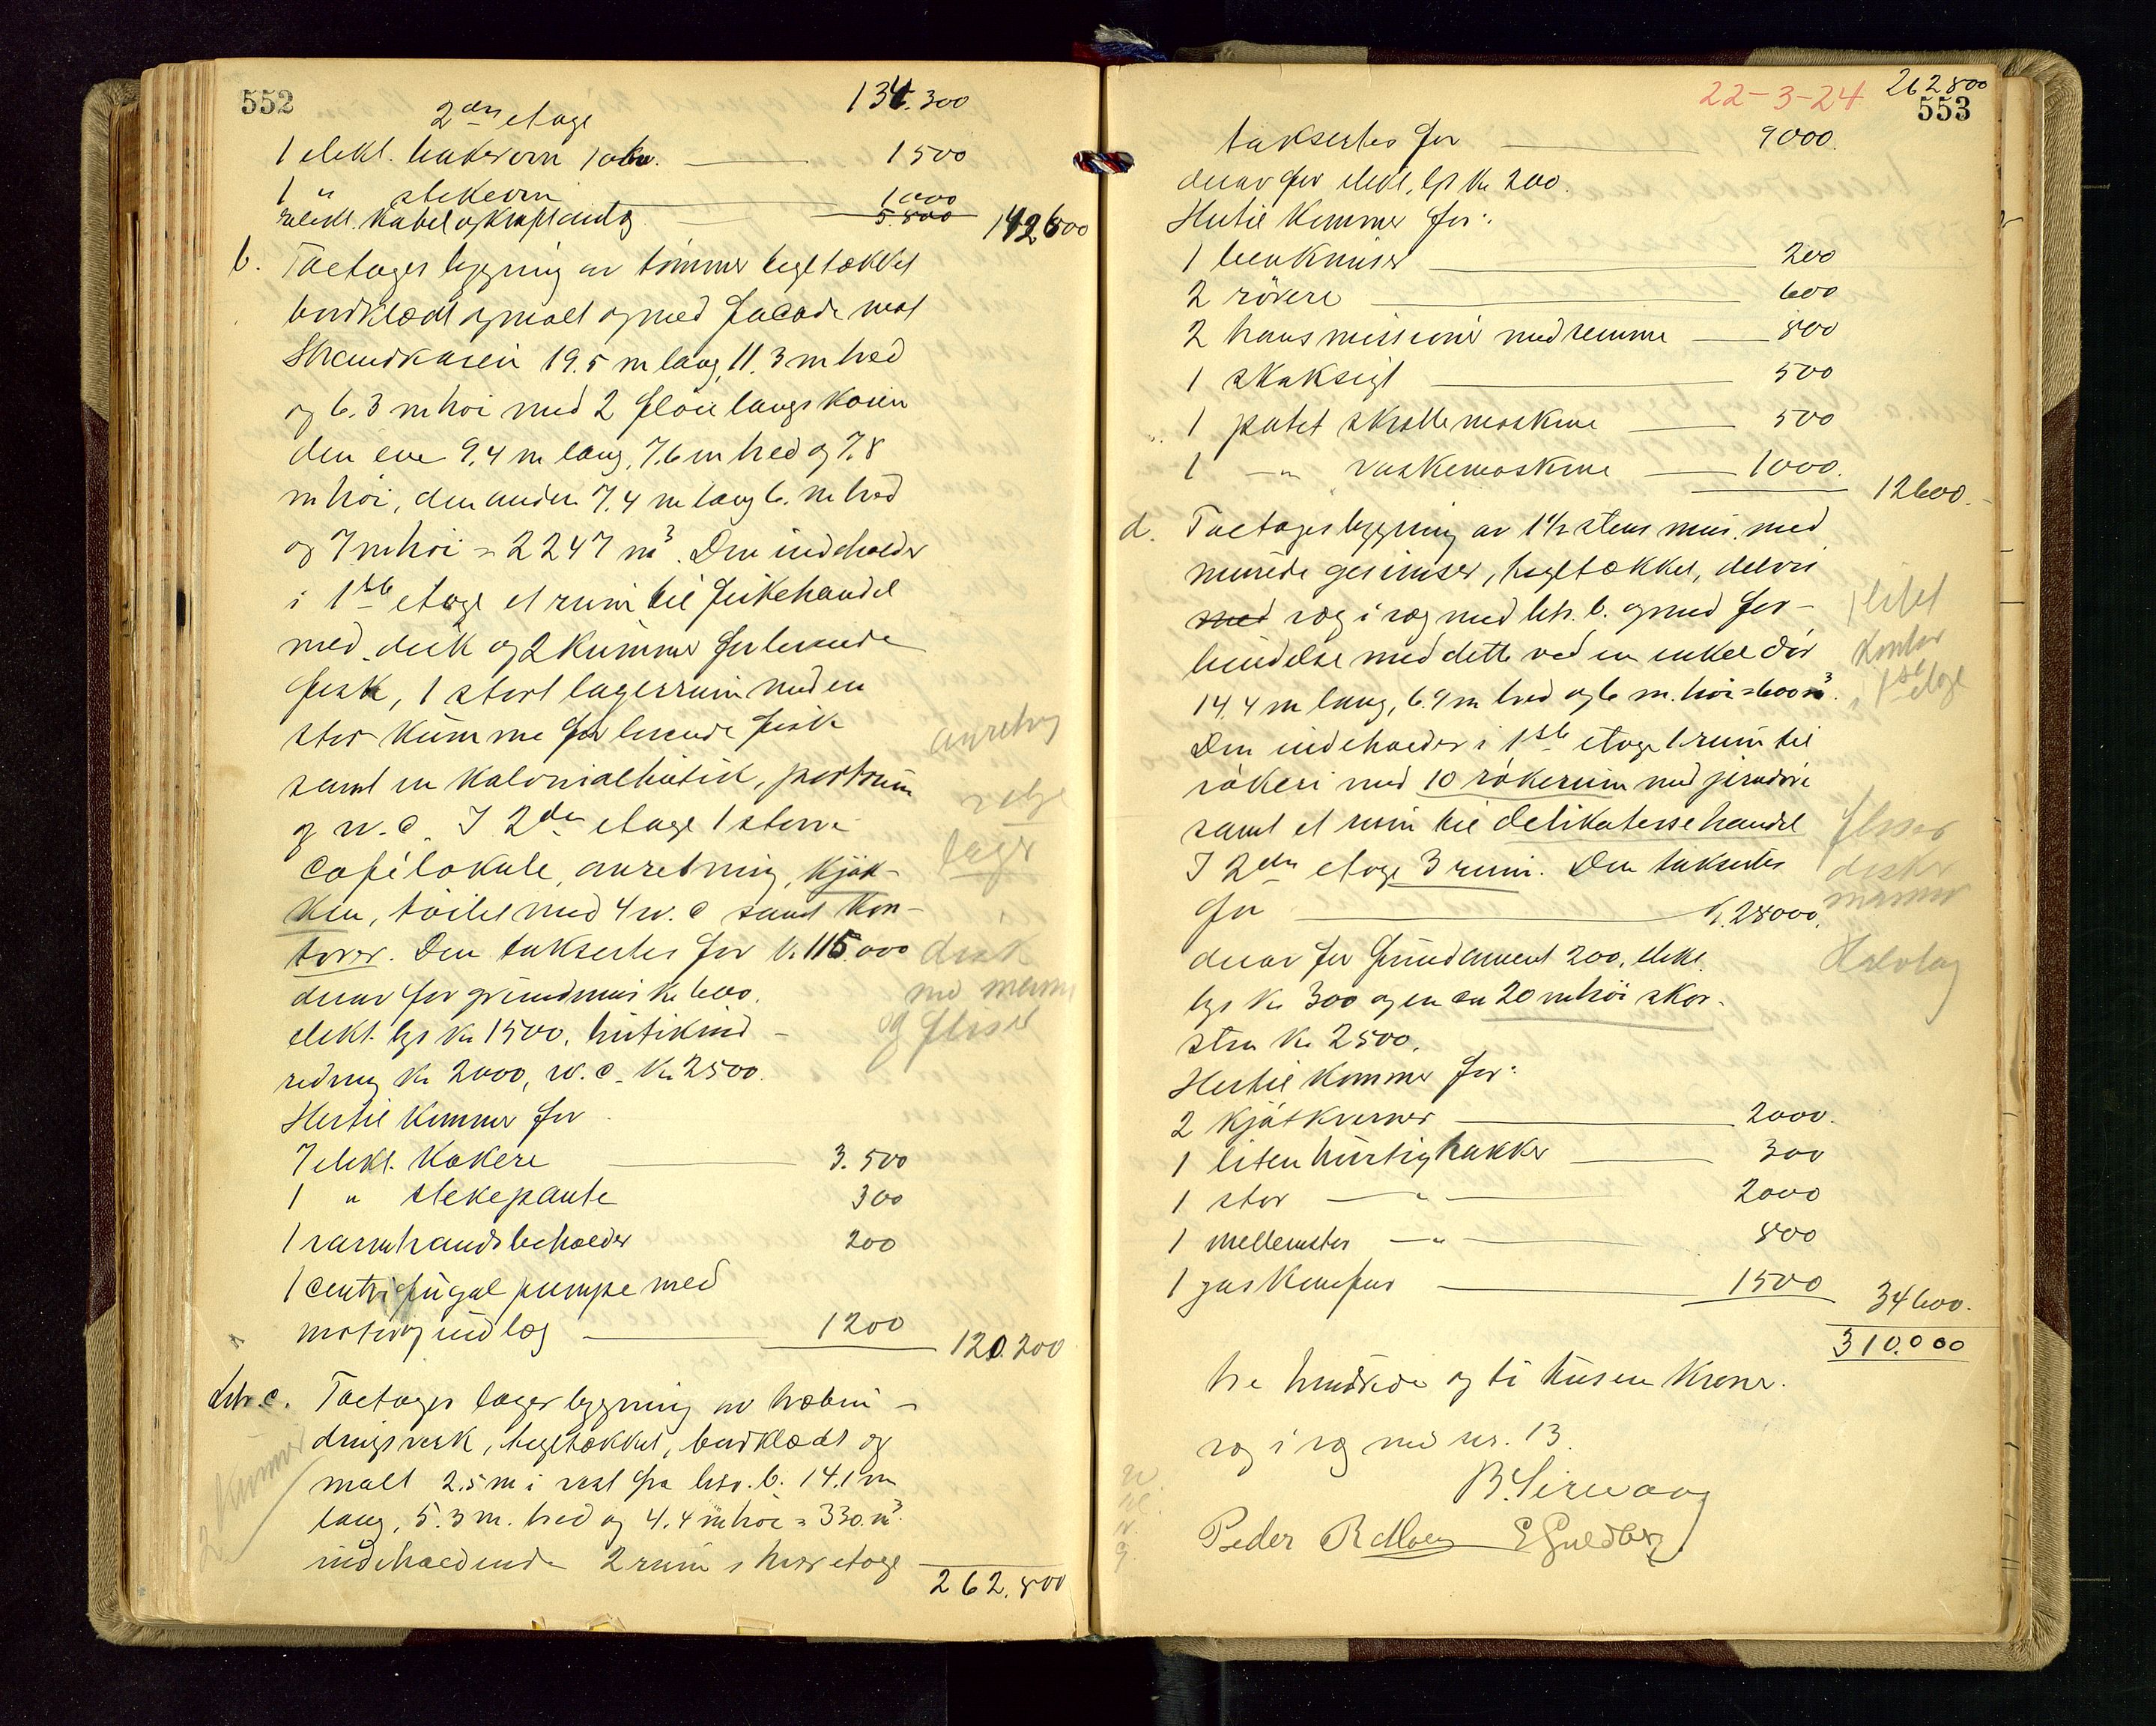 552
134.300
2den etage
1 elekt. bakerovn 10 kw. 1500
1 " stekeovn 1000
elekt. kabel og kraftanlæg 5.800 142600
b. Toetages bygning av tømmer tegltækket
bordklædt og malt og med facade mot
Strandkaien 19.5 m lang, 11.3 m bred
og 6.3 m høi med 2 fløie langs kaien
den ene 9.4 m lang, 7.6 m bred og 7.8
m høi, den anden 7.4 m lang 6. m bred
og 7 m høi = 2247 m³. Den indeholder
i 1ste etage et rum til fiskehandel
med disk og 2 kummer for levende
fisk, 1 stort lagerrum med en
stor kumme for levende fisk
samt en kolonialbutik, portrum
og w.c. I 2den etage 1 større
cafélokale, anretning, kjøk-
ken, toilet med 4 w.c samt kon-
torer. Den taksertes for kr. 115.000
derav for grundmur kr 600,
elekt. lys kr 1500, butikind-
redning kr 2000, w.c. kr 2500.
Hertil kommer for
7 elekt. kokere 3.500
1 " stekepante 300
1 varmtvandsbeholder 200
1 centrifugal pumpe med
motor og indlæg 1200 120.200
anretng
lager
disk
med marmor
og fliser
Litr. c. Toetages lagerbygning av træbin-
dingsverk, teglstækket, bordklædt og
malt 2.5 m i vest fra litr. b. 14.1 m
lang, 5.3 m. bred og 4.4 m høi = 330 m³.
indeholdende 2 rum i hver etage
262.800
2 kummer
22-3-24
262800
553
taksertes for 9000.
derav for elekt. lys kr 200.
Hertil kommer for:
1 benkmiser 200
2 rørere 600
2 transmissioner med remme 800
1 skaksigt 500
1 potet skrællemaskine 500
1 -"- vaskemaskine 1000. 12600.
d. Toetages bygning av 1½ stens mur. med
murede gesimser, tegltækket, delvis
med væg i væg med litr. b. og med for-
bindelse med dette ved en enkel dør
14.4 m lang, 6.9 m bred og 6 m. høi = 600 m³.
Den indeholder i 1ste etage 1 rum til
røkeri med 10 røkerum med jerndøre
samt et rum til delikatessehandel
I 2den etage 3 rum. Den taksertes
for kr. 28000.
derav for fundament 200, elekt.
lys kr 300 og en ca 20 m høi skor-
sten kr 2500.
Hertil kommer for:
2 kjøtkverner 2000.
1 liten hurtighakker 300
1 stor -"- 2000
1 mellemstor -"- 800
1 gaskomfur 1500 34600.
310.000
1 litet
kontor
i 1ste etage
fliser
disker
marmor
tre hundrede og ti tusen kroner.
væg i væg med nr. 13.
B. Sirevaag
Peder R Moen E Guldbrg